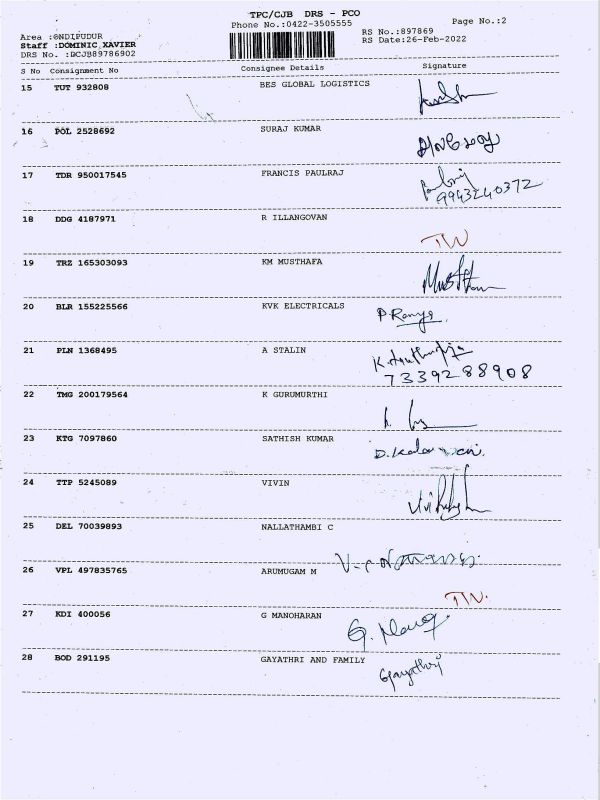 TPC/CJB DRS - PCO
Phone No.:0422-3505555
Page No.:2
Area :ONDIPUDUR
RS No.:897869
Staff :DOMINIC XAVIER
RS Date:26-Feb-2022
DRS No. :DCJB89786902
S No Consignment No Consignee Details Signature
15 TUT 932808 BES GLOBAL LOGISTICS
16 POL 2528692 SURAJ KUMAR
17 TDR 950017545 FRANCIS PAULRAJ
9943240372
18 DDG 4187971 R ILLANGOVAN
TW
19 TRZ 165303093 KM MUSTHAFA
20 BLR 155225566 KVK ELECTRICALS
P.Ramya
21 PLN 1368495 A STALIN
7339288908
22 TMG 200179564 K GURUMURTHI
23 KTG 7097860 SATHISH KUMAR
24 TTP 5245089 VIVIN
25 DEL 70039893 NALLATHAMBI C
26 VPL 497835765 ARUMUGAM M
TW.
27 KDI 400056 G MANOHARAN
28 BOD 291195 GAYATHRI AND FAMILY
Gayathri